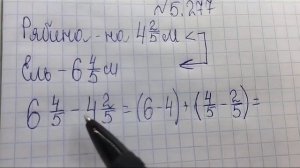 №5.277
Рябина - на 4 2/5 м
Ель - 6 4/5 м
6 4/5 - 4 2/5 = (6-4) + (4/5 - 2/5) =